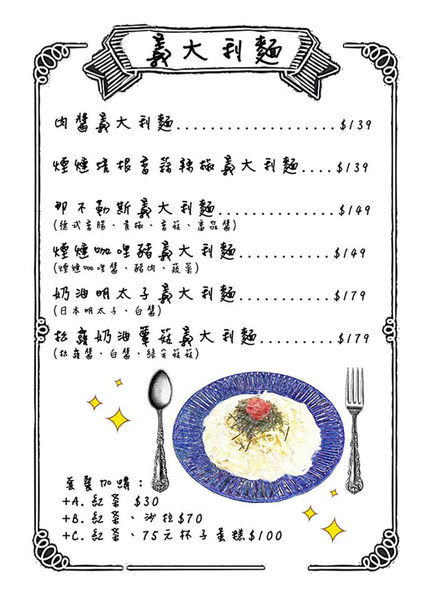 義大利麵
肉醬義大利麵...................$139
煙燻培根蒜辣椒義大利麵....$139
那不勒斯義大利麵..............$149
(德式香腸、青椒、香菇、番茄醬)
煙燻咖哩豬義大利麵...........$149
(煙燻咖哩醬、豬肉、蔬菜)
奶油明太子義大利麵...........$179
(日本明太子、白醬)
松露奶油蕈菇義大利麵.........$179
(松露醬、白醬、綜合菇菇)
套餐加購:
+A.紅茶 $30
+B.紅茶、沙拉$70
+C.紅茶、75元杯子蛋糕$100